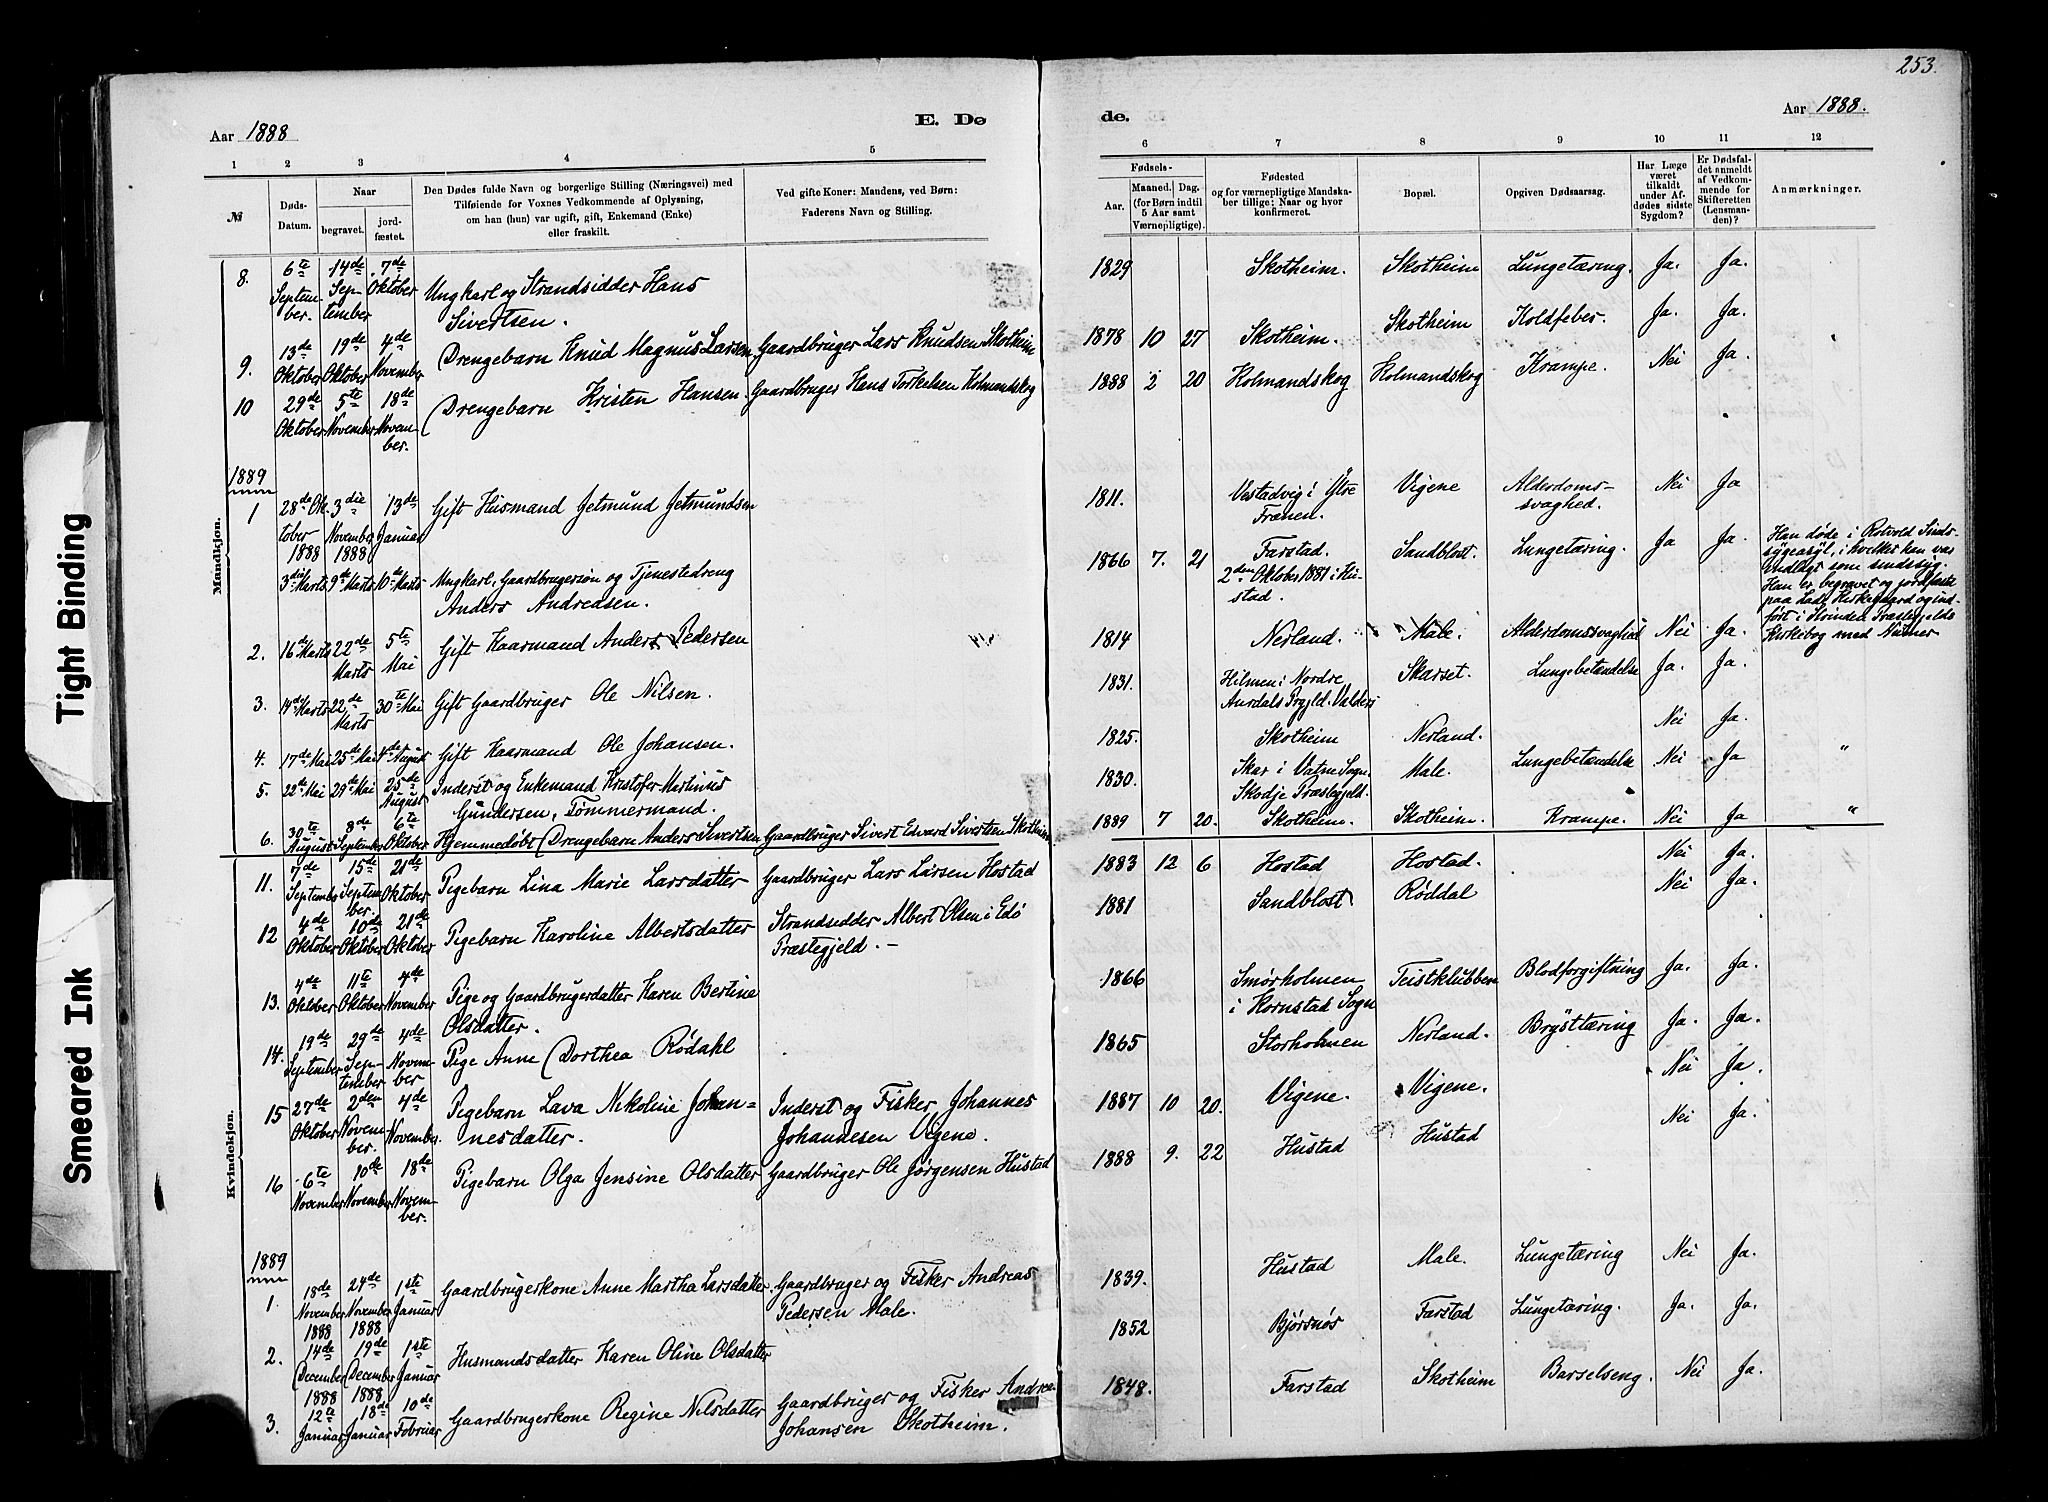 253.
Aar 1888
E. Dø
de.
Aar 1888.
1 2 3 4 5
6 7 8 9 10 11 12
№
Døds-
Datum.
Naar
begravet.
jord-
fæstet.
Den Dødes fulde Navn og borgerlige Stilling (Næringsvei) med
Tilføiende for Voxnes Vedkommende af Oplysning,
om han (hun) var ugift, gift, Enkemand (Enke)
eller fraskilt.
Ved gifte Koner: Mandens, ved Børn:
Faderens Navn og Stilling.
Fødsels-
Aar.
Maaned.
Dag.
(for Børn indtil
5 Aar samt
Værnepligtige).
Fødested
og for værnepligtige Mandska-
ber tillige: Naar og hvor
konfirmeret.
Bopæl.
Opgiven Dødsaarsag.
Har Læge
været
tilkaldt
under Af-
dødes sidste
Sygdom?
Er Dødsfal-
det anmeldt
af Vedkom-
mende for
Skifteretten
(Lensman-
den)?
Anmærkninger.
Mandkjøn.
8. 6te September. 14de September 7de Oktober Ungkarl og Strandsidder Hans
Sivertsen. 1829 Skotheim. Skotheim Lungetæring. Ja. Ja.
9. 13de Oktober 19de Oktober 4de November Drengebarn Knud Magnus Larsen Gaardbruger Lars Knudsen Skotheim 1878 10 27 Skotheim. Skotheim Koldfeber. Ja. Ja.
10 29de Oktober 5te November 18de November. Drengebarn Kristen Hansen. Gaardbruger Hans Torkelsen Kolmandskog 1888 2 20 Kolmandskog Kolmandskog Krampe. Nei Ja.
1889
1 28de Oktober 1888 3die November 1888 13de Januar Gift Husmand Jetmund Jetmundsen 1811. Vestadvig i Ytre
Frænen. Vigene Alderdoms-
svaghed. Nei Ja
3die Marts 9de Marts 10de Marts Ungkarl, Gaardbrugersøn og Tjenestedreng
Anders Andreasen. 1866 7. 21 Farstad.
2den Oktober 1881 i Hu-
stad. Sandblost. Lungetæring. Ja Ja.
Han døde i Rotvold Sinds-
sygeasyl, i hvilket han var
indlagt som sindssyg.
Han er begravet og jordfæstet
paa Lade Kirkegaard og ind-
ført i Strinden Præstegjelds
Kirkebog med Numer
2. 16de Marts 22de Marts 5te Mai Gift Kaarmand Anders Pedersen 1814 Nerland. Male. Alderdomssvaghed Nei Ja.
3. 14de Marts 22de Marts 30te Mai Gift Gaardbruger Ole Nilsen. 1831. Hilmen i Nordre
Aurdals Prgjld. Valders Skarset. Lungebetændelse Ja. Ja.
4. 17de Mai 25de Mai 4de August Gift Kaarmand Ole Johansen. 1825. Skotheim Nerland. Nei Ja.
5. 22de Mai 29de Mai 25de August Inderst og Enkemand Kristofer Martinus
Gundersen, Tømmermand. 1830. Skar i Vatne Sogn
Skodje Præstegjeld. Male. Lungebetændelse Nei Ja "
6. 30te August 8de September 6te Oktober Hjemmedøbt Drengebarn Anders Sivertsen Gaardbruger Sivert Edvard Sivertsen Skotheim 1889 7 20. Skotheim. Skotheim. Krampe. Nei Ja "
Kvindekjøn.
11. 7de September 15de September. 21de Oktober Pigebarn Lina Marie Larsdatter Gaardbruger Lars Larsen Hostad 1883 12 6 Hostad Hostad. Nei Ja.
12 4de Oktober 10de Oktober 21de Oktober Pigebarn Karoline Albertsdatter Strandsidder Albert Olsen i Edø
Præstegjeld. – 1881 Sandblost. Røddal Nei Ja.
13. 4de Oktober 11te Oktober 4de November Pige og Gaardbrugerdatter Karen Bertine
Olsdatter. 1866 Smørholmen
i Kornstad Sogn Teistklubben Blodforgiftning Ja. Ja.
14. 19de September 29de September 4de November Pige Anne Dorthea Rødahl 1865 Storholmen Nerland. Brysttæring Ja. Ja.
15 27de Oktober 2den November. 4de November. Pigebarn Lava Nikoline Johan=
nesdatter. Inderst og Fisker Johannes
Johannesen Vigene. 1887 10 20. Vigene. Vigene. Nei Ja.
16 6te November 10de November 18de November. Pigebarn Olga Jensine Olsdatter Gaardbruger Ole Jørgensen Hustad 1888 9. 22 Hustad Hustad Nei Ja.
1889
1. 18de November 1888 24de November 1888 1ste Januar Gaardbrugerkone Anne Martha Larsdatter Gaardbruger og Fisker Andreas
Pedersen Male. 1839. Hustad Male. Lungetæring Nei Ja.
2. 14de December 1888 19de December 1888 1ste Januar Husmandsdatter Karen Oline Olsdatter 1852 Bjørsnøs Farstad Lungetæring. Ja. Ja.
3. 12te Januar 18de Januar 10de Februar Gaardbrugerkone Regine Nilsdatter Gaardbruger og Fisker Andrea
Johansen Skotheim. 1848. Farstad Skotheim Barselseng. Nei Ja.
Tight Binding
Smeared Ink